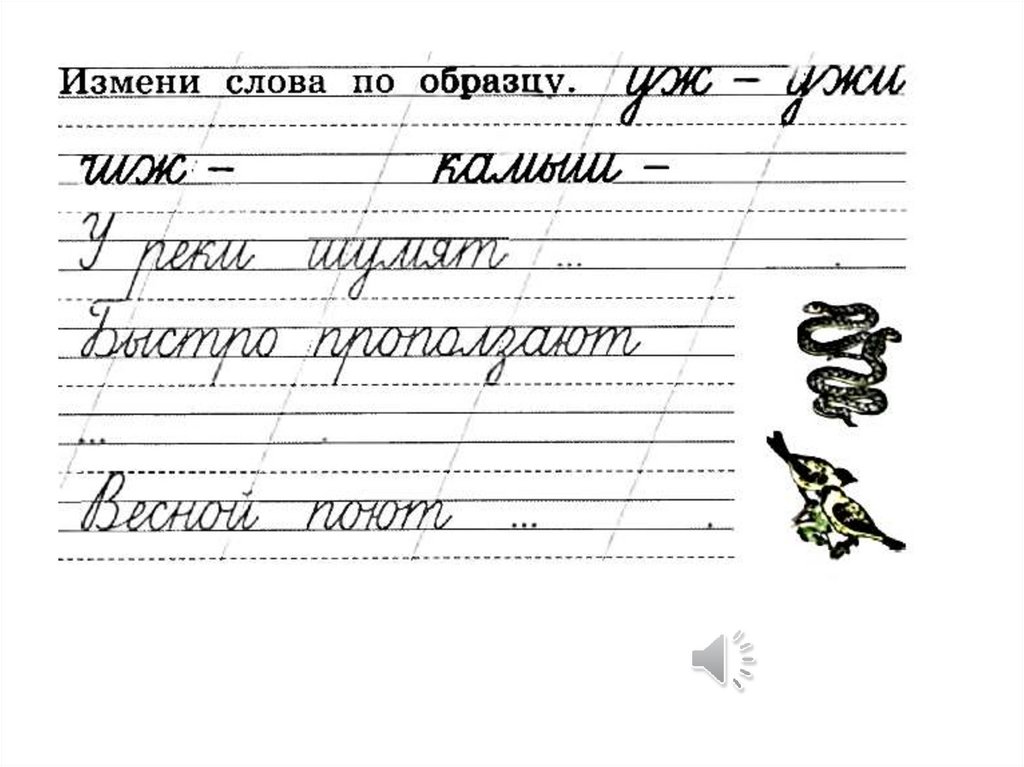 Измени слова по образцу. уж – ужи
чиж – камыш –
У реки шумят ... .
Быстро проползают
... .
Весной поют ... .